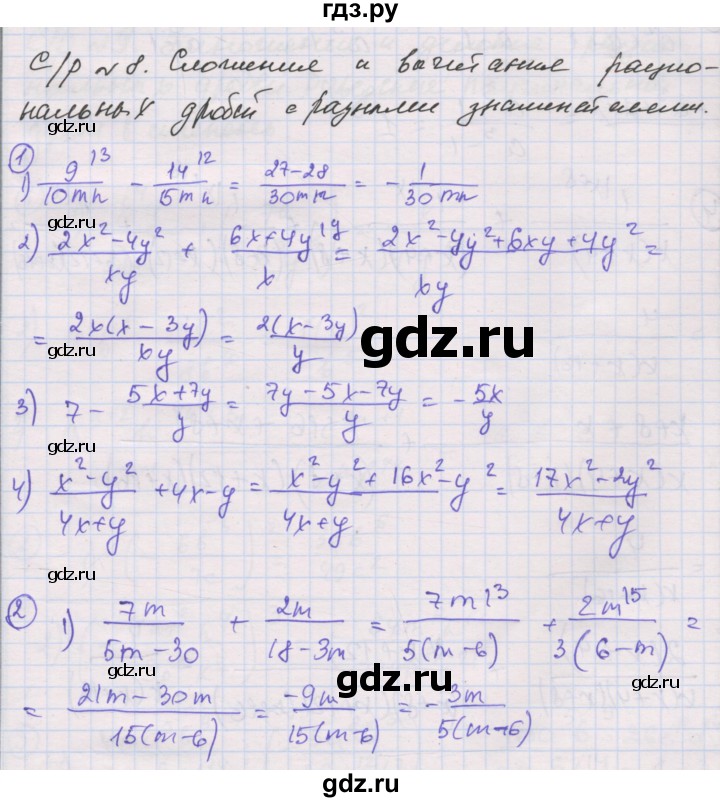 гдз.ру
С/р №8. Сложение и вычитание рацио-
нальных дробей с разными знаменателями.
gdz.ru gdz.ru
① 1) 9^{13}/10mn - 14^{12}/15mn = 27-28/30mn = - 1/30mn
gdz.ru gdz.ru
2) 2x²-4y²/xy + 6x+4y^{1y}/x = 2x²-4y²+6xy+4y²/xy =
= 2x(x-3y)/xy = 2(x-3y)/y
gdz.ru gdz.ru gdz.ru
3) 7 - 5x+7y/y = 7y-5x-7y/y = - 5x/y
gdz.ru gdz.ru
4) x²-y²/4x+y + 4x-y = x²-y²+16x²-y²/4x+y = 17x²-2y²/4x+y
gdz.ru gdz.ru
② 1) 7m/5m-30 + 2m/18-3m = 7m^{13}/5(m-6) + 2m^{15}/3(6-m) =
gdz.ru gdz.ru
= 21m-30m/15(m-6) = -9m/15(m-6) = - 3m/5(m-6)
gdz.ru gdz.ru
gdz.ru